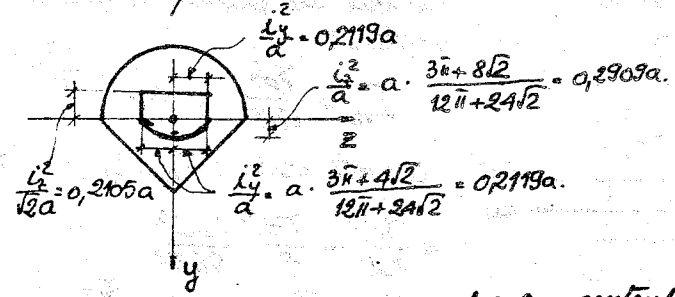 i_y²/a = 0,2119a
i_z²/a = a · (3π+8√2)/(12π+24√2) = 0,2909a.
z
i_z²/√2a = 0,2105a
i_y²/a = a · (3π+4√2)/(12π+24√2) = 0,2119a.
y